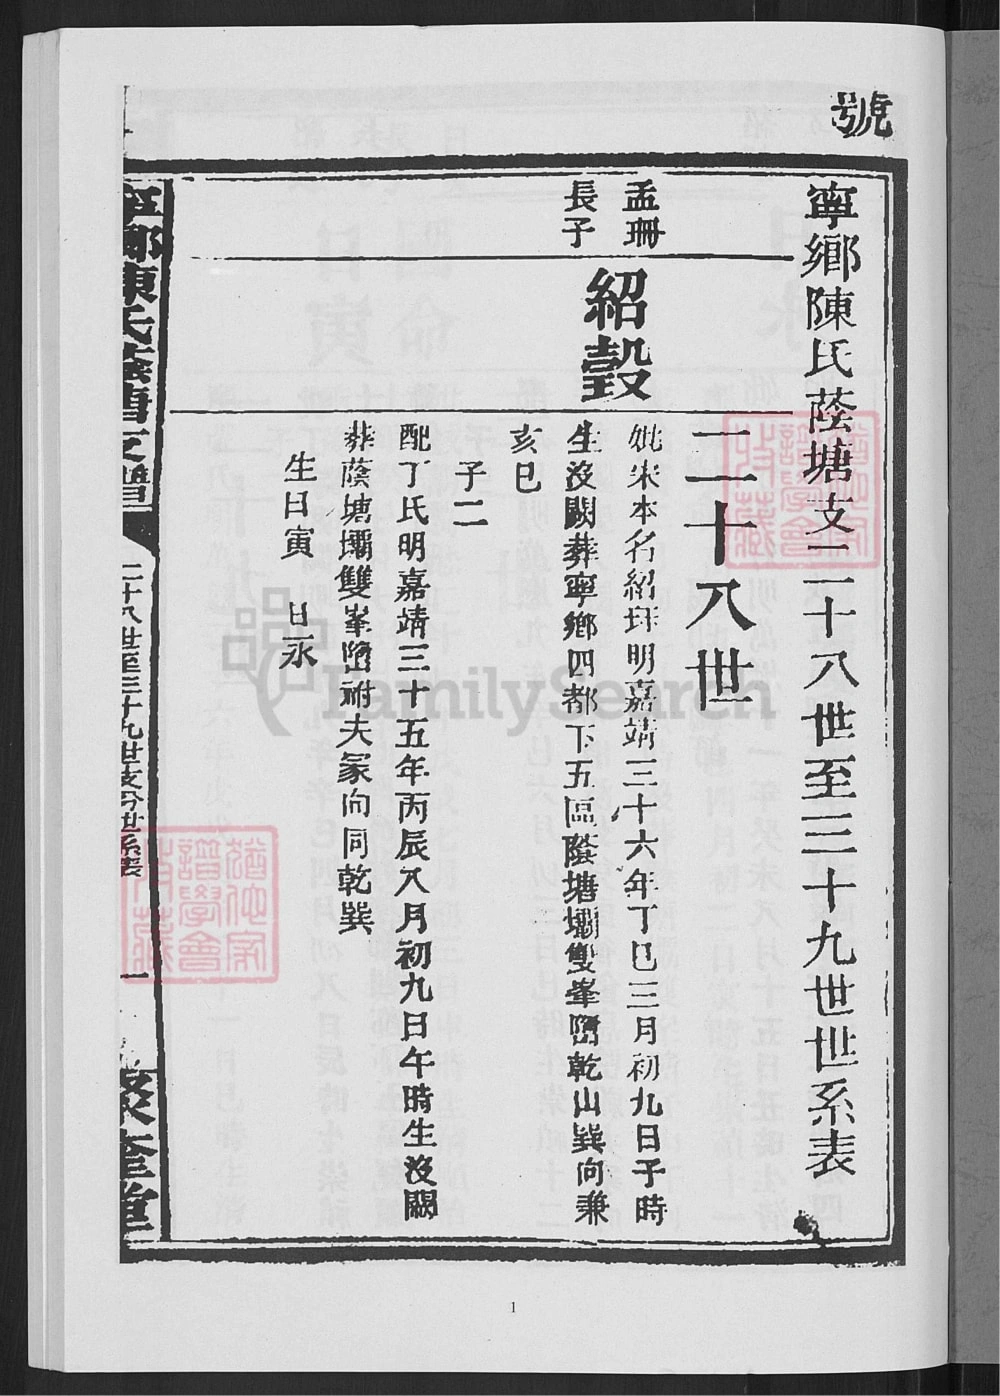 號
寧鄉陳氏蔭塘支二十八世至三十九世世系表
二十八世
孟珊
長子
紹轂
妣宋本名紹玶明嘉靖三十六年丁巳三月初九日子時
生沒闕葬寧鄉四都下五區蔭塘壩雙峯隋乾山巽向兼
亥巳
子二
配丁氏明嘉靖三十五年丙辰八月初九日午時生沒闕
葬蔭塘壩雙峯隋祔夫冢向同乾巽
生日寅 日永
寧鄉陳氏蔭塘支譜
二十八世至三十九世支分世系表
一
聚奎堂
譜學會
收藏
FamilySearch
1